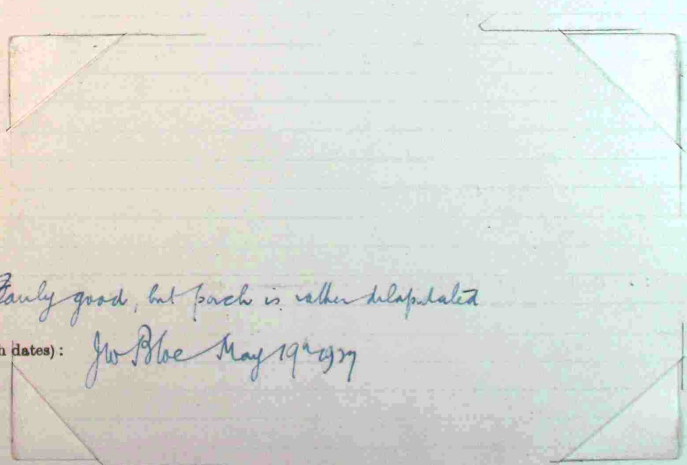 Fairly good, but porch is rather delapidated
h dates): JW Bloe May 19th 1927